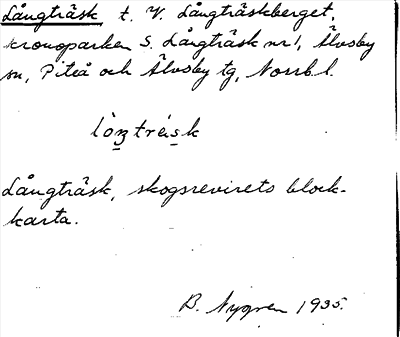 Långträsk t. V. Långträskberget,
kronoparken S. Långträsk nr 1, Älvsby
sn, Piteå och Älvsby tg, Norrb. l.
lòŋtrέsk
Långträsk, skogsrevirets block-
karta.
B. Nygren 1935.